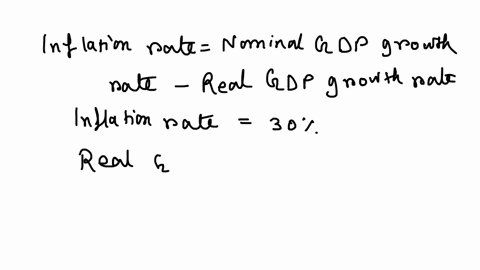 Inflation rate = Nominal GDP growth
rate - Real GDP growth rate
Inflation rate = 30%
Real G